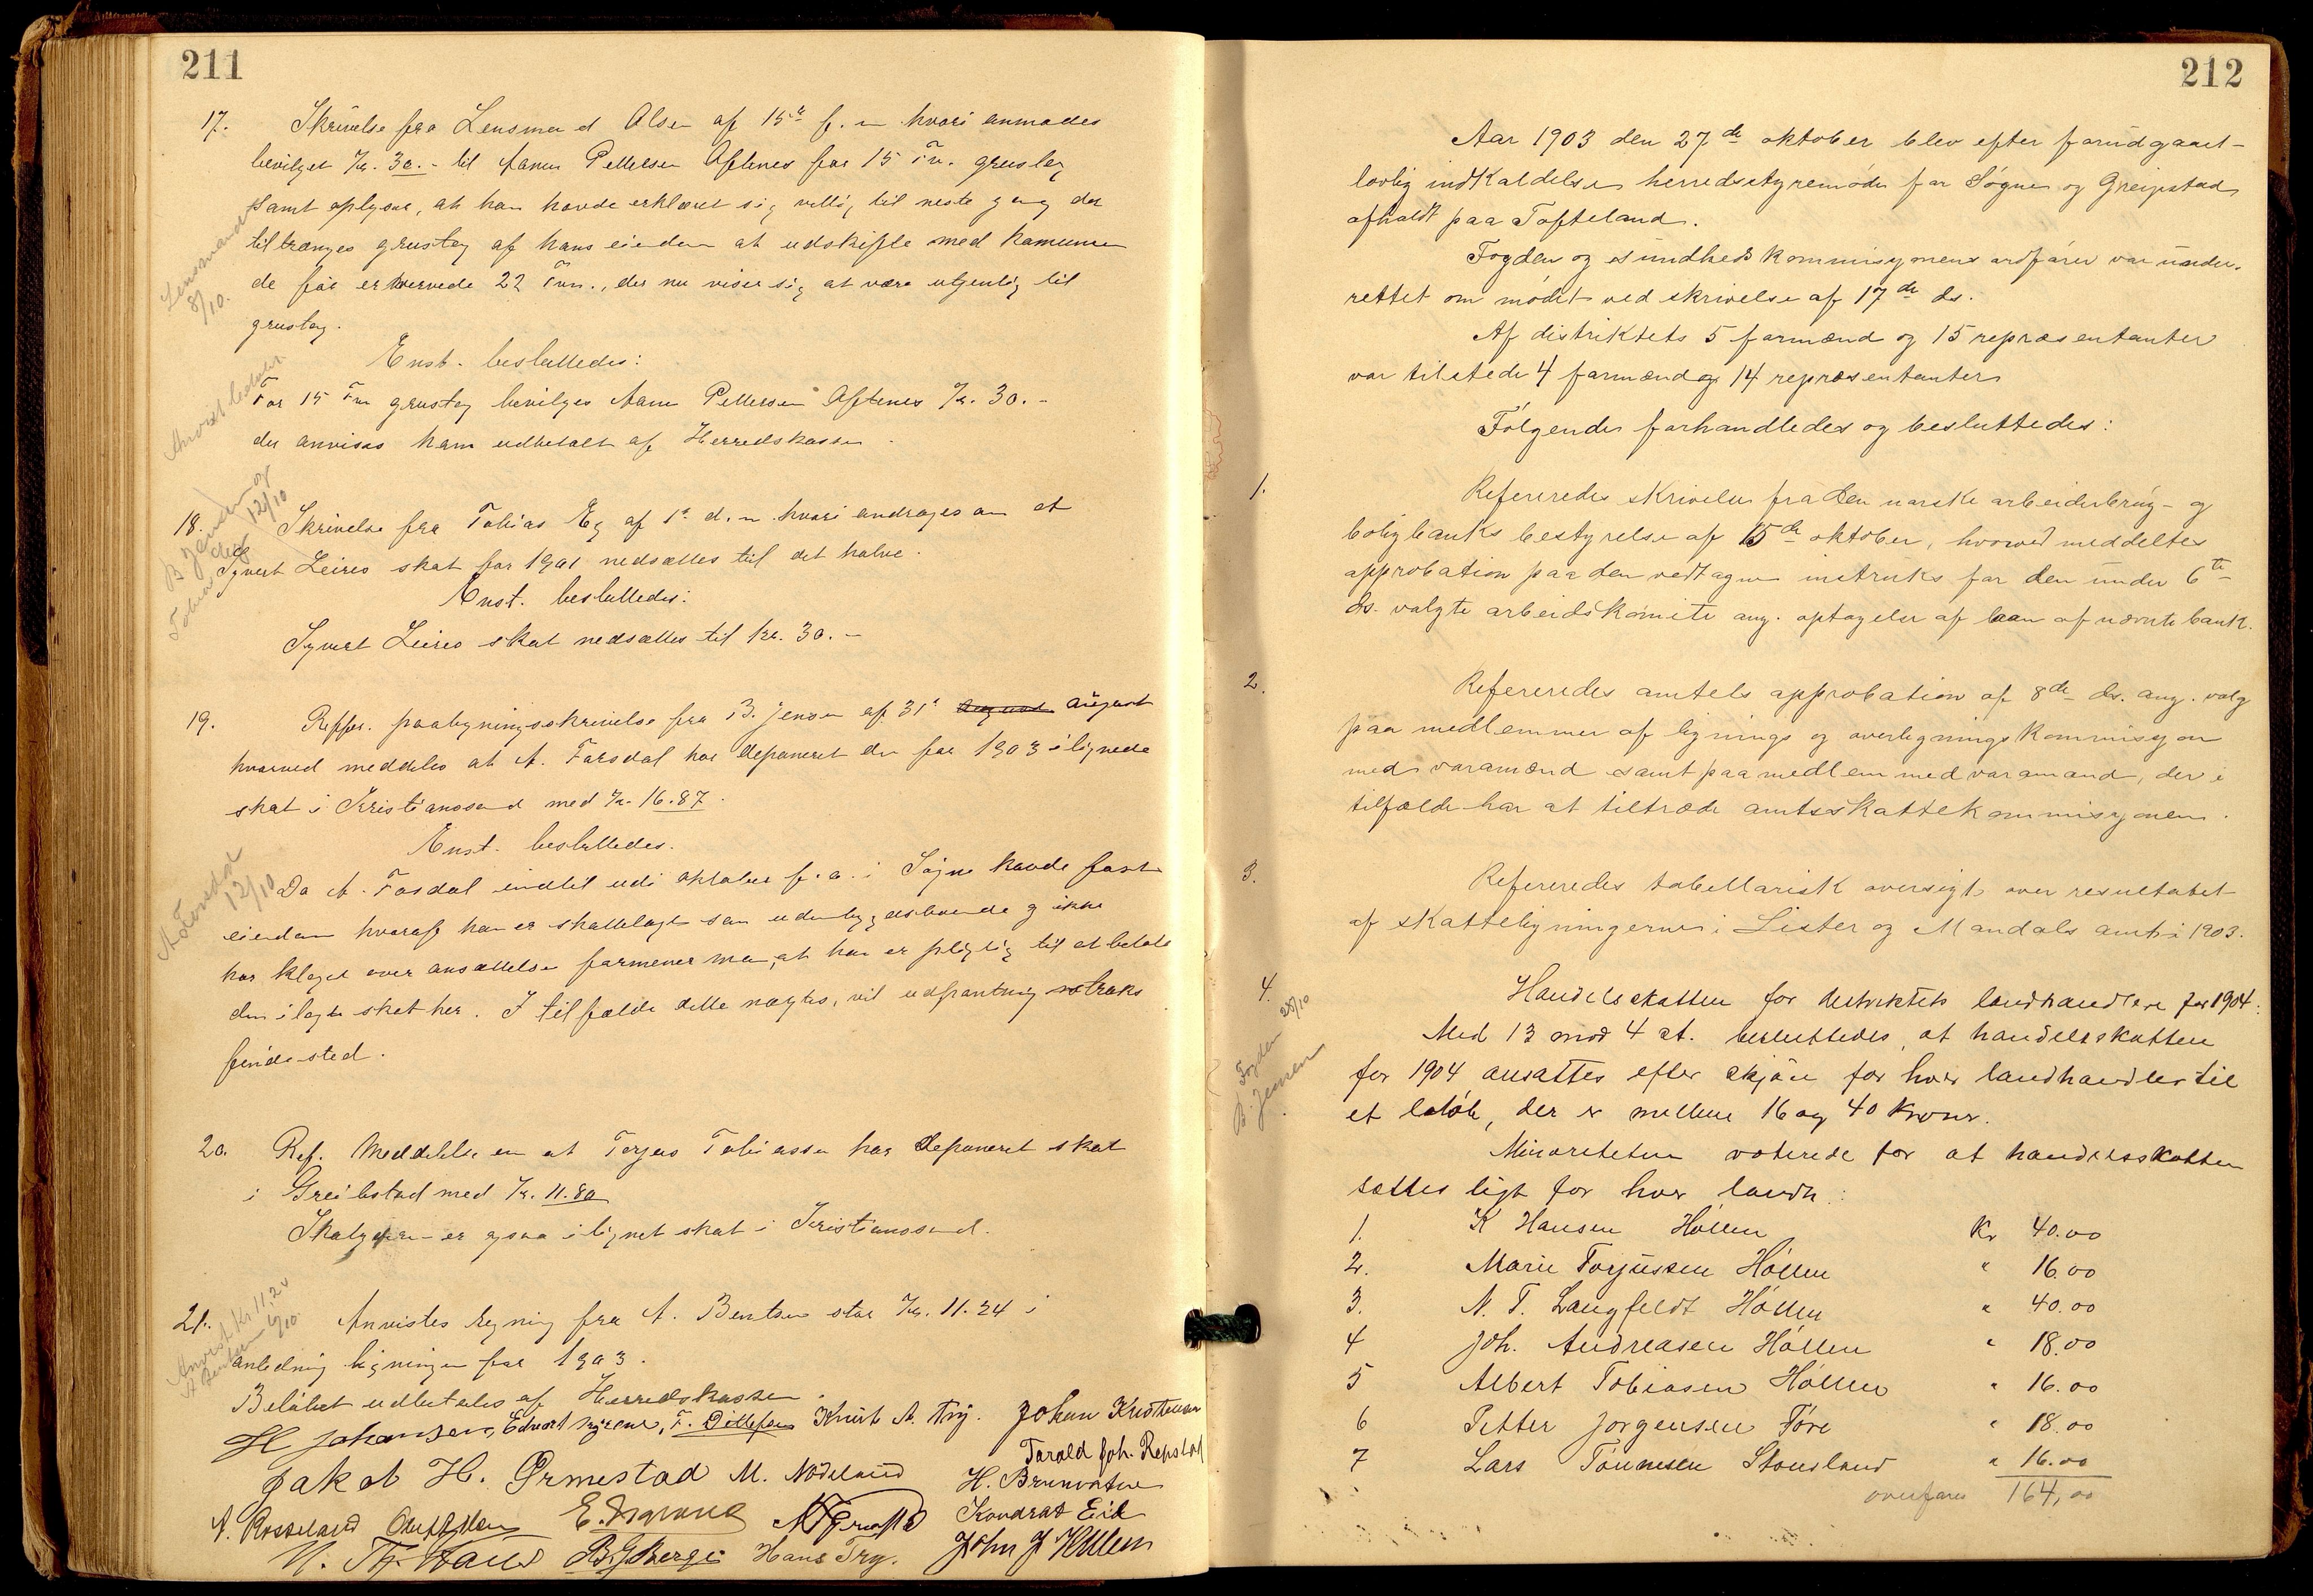 211
17. Skrivelse fra Lensmand Olsen af 15de f. m. hvori anmodes
bevilget Kr. 30.- til Aanen Pettersen Aftenes for 15 Fm. grustag
samt oplyser, at han havde erklæret sig villig til neste gang der
tiltrænges grustag af hans eiendom at udskifte med kamunen
de før erhvervede 22 Fvn., der nu viser sig at være utjenlig til
grustag.
Lensmanden 8/10.
Enst. besluttedes:
For 15 Fm grustag bevilges Aanen Pettersen Aftenes Kr. 30.-
der anvises ham udbetalt af Herredskassen.
Anvist
18. Skrivelse fra Tobias Eg af 1ste d. m. hvori andrages om at
Syvert Leires skat for 1901 nedsættes til det halve.
B Jensen og Tobias Eeg 12/10
Enst. besluttedes:
Syvert Leires skat nedsættes til Kr. 30.-
19. Reffer. paabygningsskrivelse fra B. Jensen af 31te august august
hvorved meddeles at A. Farsdal har deponeret den for 1903 ilignede
skat i Kristianssand med Kr. 16.87.
Enst. besluttedes.
Da A. Fosdal indtil udi oktober f. a. i Søgne havde fast
eiendom hvoraf han er skattelagt som udenbygdsboende og ikke
har klaget over ansættelsen formener man, at han er pligtig til at betale
den ilagte skat her. I tilfælde dette nægtes, vil udpantning straks
finde sted.
12/10
20. Ref. Meddelelse om at Terjes Tobiassen har deponeret skat
i Greibstad med Kr. 11.80
Skatyderen er ogsaa ilignet skat i Kristianssand.
21. Anvistes regning fra A. Bentsen stor Kr. 11.24 i
anledning ligningen for 1903.
Beløbet udbetales af Herredskassen.
Anvist Kr 11,24
A Bentsen 9/10.
H Johansen, Edvart Nygrene, F. Ditlefsen Knut A. Try. Johan Kristensen
Tarald Joh. Repstad
Jakob H. Ormestad M. Nødeland H. Brunvatne
A. Rosseland Kondrat Eik
N. Th. B. G. Berge Hans Try. John J Kullen
212
Aar 1903 den 27de oktober blev efter forudgaaet
lovlig indkaldelse herredsstyremøde for Søgne og Greipstad
afholdt paa Tofteland.
Fogden og sundhedskommisjonens ordfører var under-
rettet om mødet ved skrivelse af 17de ds.
Af distriktets 5 formænd og 15 repræsentanter
var tilstede 4 formænd og 14 repræsentanter
Følgende forhandledes og besluttedes:
1. Refereredes skrivelse fra den norske arbeiderbrug- og
boligbanks bestyrelse af 15de oktober, hvorved meddeltes
approbation paa den vedtagne instruks for den under 6te
ds. valgte arbeidskomite ang. optagelse af laan af nævnte bank.
2. Refereredes amtets approbation af 8de ds. ang. valg
paa medlemmer af lignings og overligningskommisjon
med varamænd samt paa medlem med varamand, der i
tilfælde har at tiltræde amtsskattekommisjonen.
3. Refereredes tabellarisk oversigt over resultatet
af skatteligningerne i Lister og Mandals amt i 1903.
4. Handelsskatten for distriktets landhandlere for 1904:
Med 13 mod 4 st. besluttedes, at handelsskatten
for 1904 ansættes efter skjøn for hver landhandler til
et beløb, der er mellem 16 og 40 kroner.
Fogden 28/10
B. Jensen
Minoriteten voterede for at handelsskatten
sættes ligt for hver landh.:
1. K Hansen Høllen Kr 40.00
2. Marie Torjussen Høllen " 16.00
3. N. T. Langfeldt Høllen " 40.00
4 Joh. Andreasen Høllen " 18.00
5 Albert Tobiasen Høllen " 16.00
6 Petter Jørgensen Føre " 18.00
7 Lars Tønnesen Stousland " 16.00
overføres 164,00